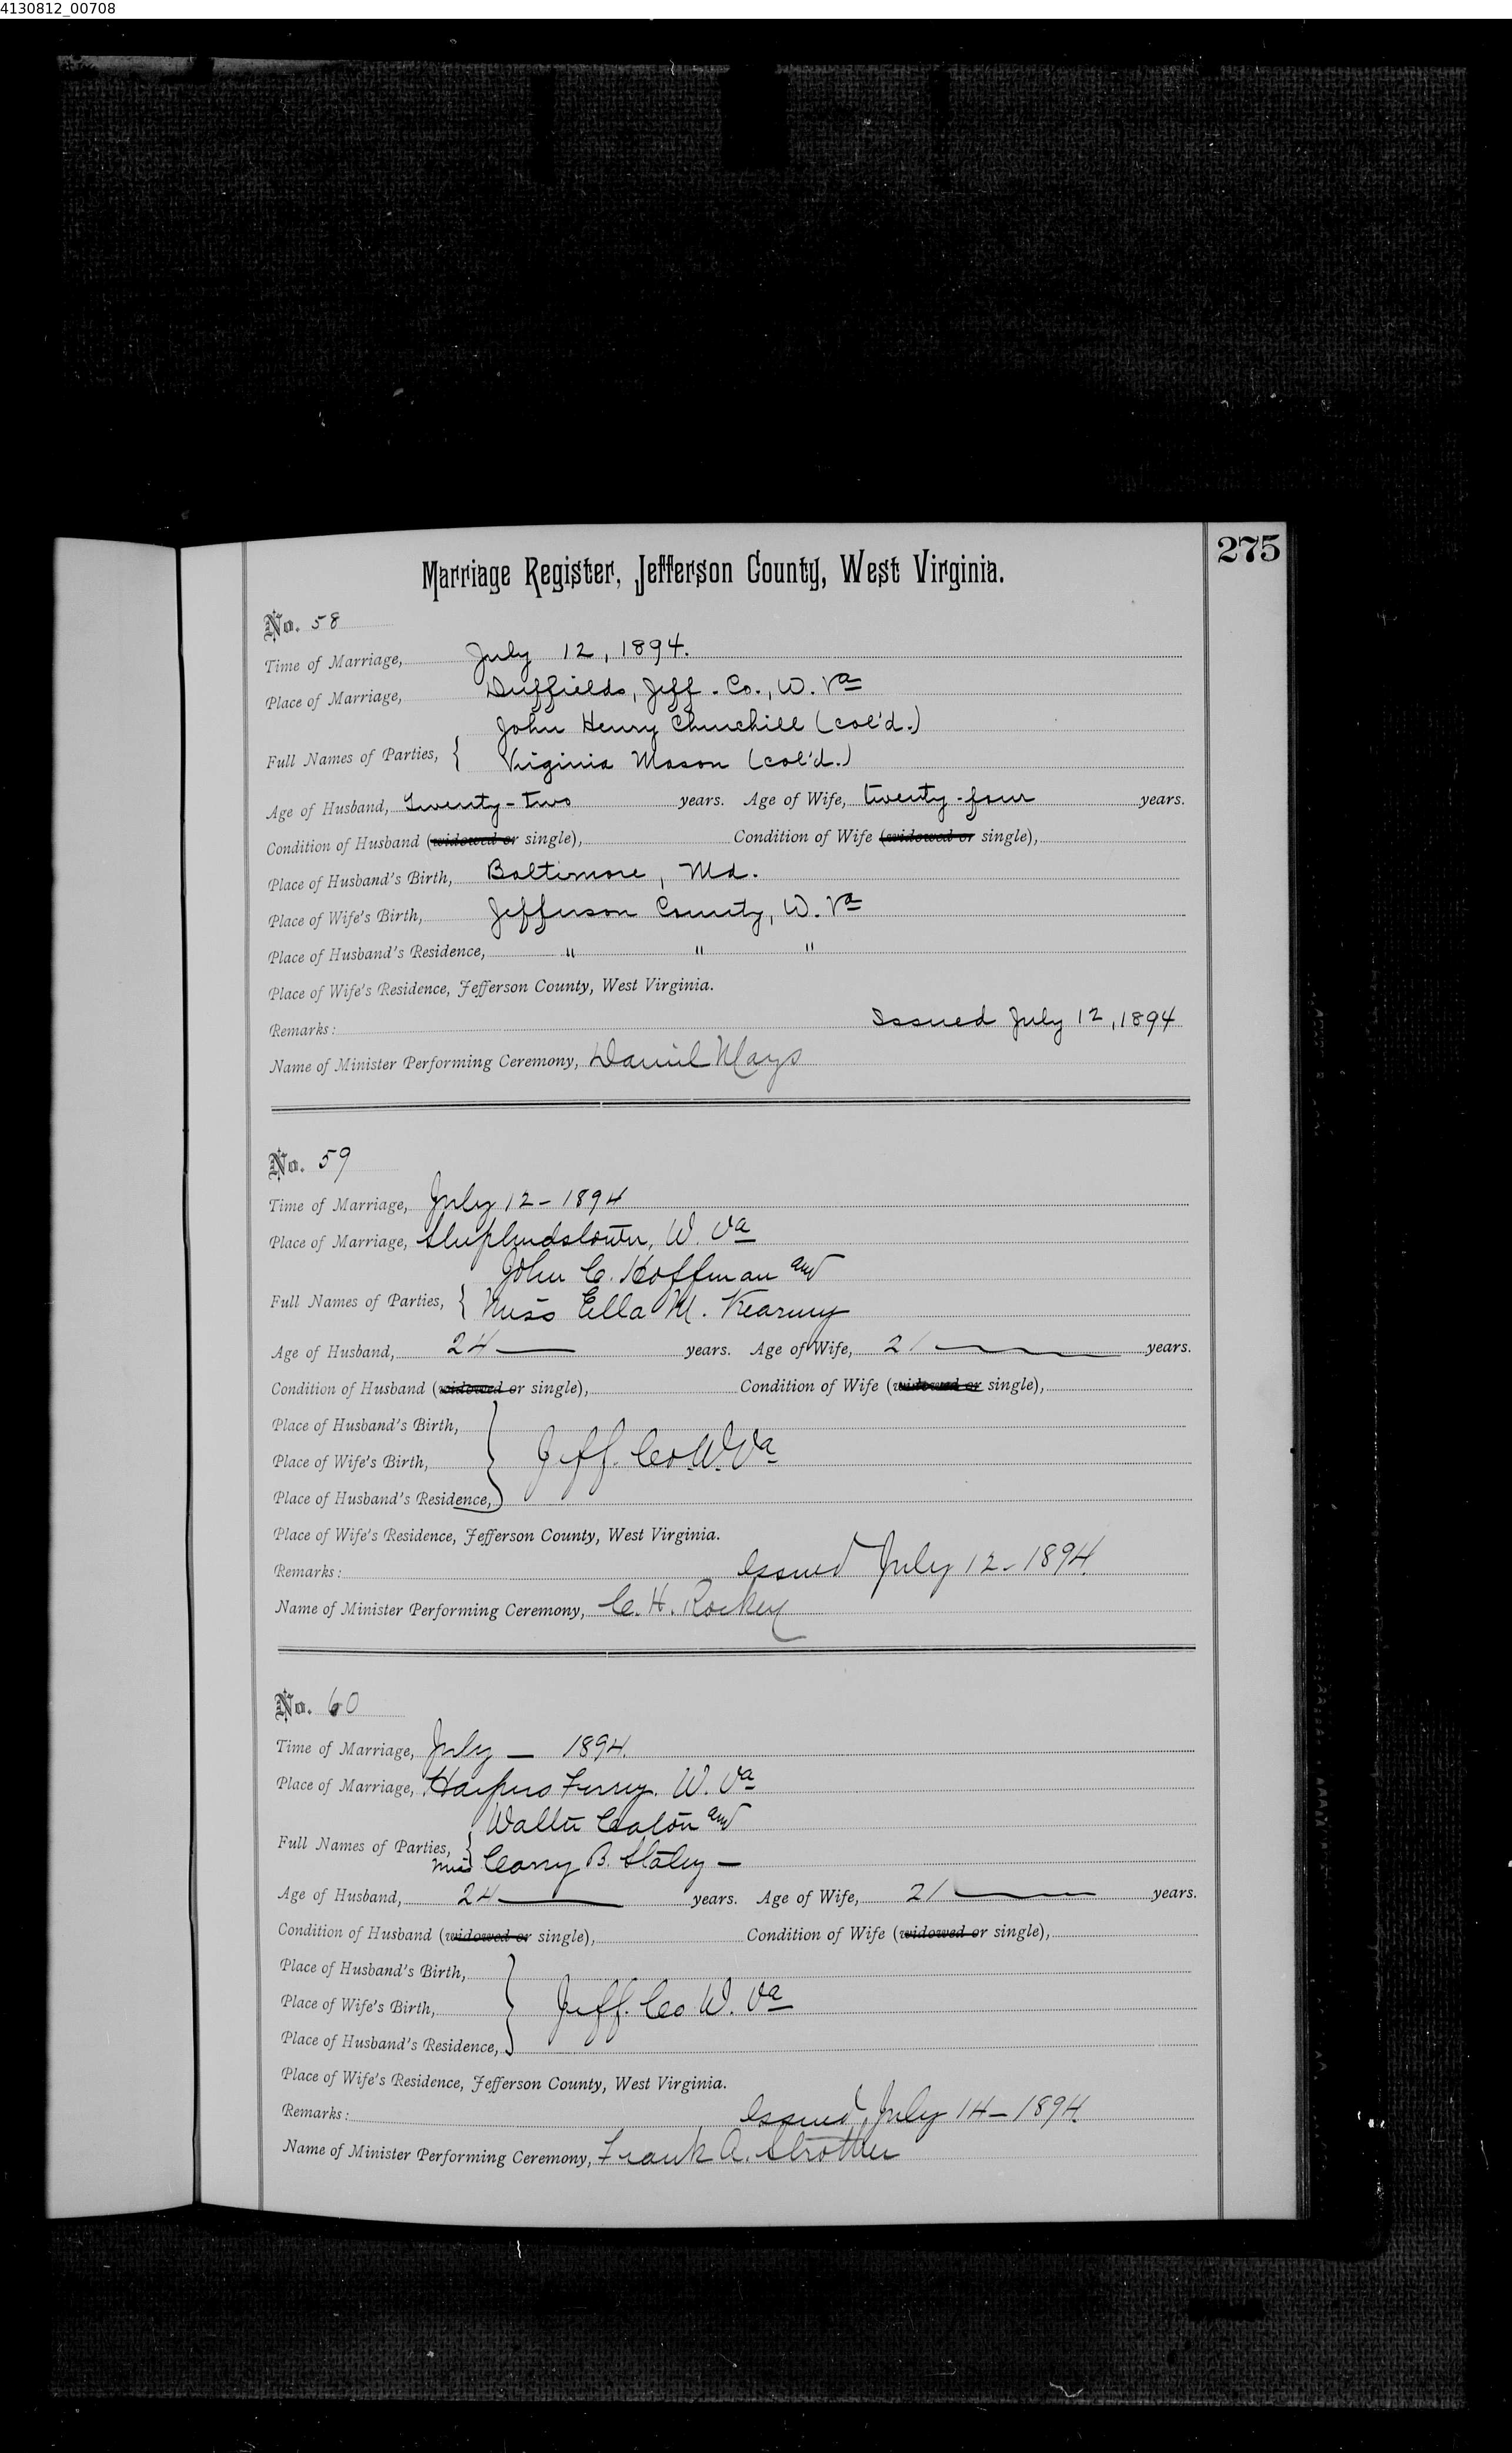 4130812_00708
275
Marriage Register, Jefferson County, West Virginia.
No. 58
Time of Marriage, July 12, 1894.
Place of Marriage, Duffields, Jeff. Co., W. Va
John Henry Churchill (col'd.)
Full Names of Parties, {
Virginia Mason (col'd.)
Age of Husband, Twenty-two years. Age of Wife, twenty-four years.
Condition of Husband (widowed or single), Condition of Wife (widowed or single),
Place of Husband's Birth, Baltimore, Md.
Place of Wife's Birth, Jefferson County, W. Va
Place of Husband's Residence, " " "
Place of Wife's Residence, Jefferson County, West Virginia.
Remarks: Issued July 12, 1894
Name of Minister Performing Ceremony, Daniel Mays
No. 59
Time of Marriage, July 12 - 1894
Place of Marriage, Shepherdstown, W. Va
John C. Hoffman and
Full Names of Parties, { Miss Ella M. Kearney
Age of Husband, 24 — years. Age of Wife, 21 — years.
Condition of Husband (widowed or single), Condition of Wife (widowed or single),
Place of Husband's Birth,
Place of Wife's Birth, } Jeff. Co W. Va
Place of Husband's Residence,
Place of Wife's Residence, Jefferson County, West Virginia.
Remarks: Issued July 12 - 1894.
Name of Minister Performing Ceremony, C. H. Rockey
No. 60
Time of Marriage, July — 1894.
Place of Marriage, Harpers Ferry. W. Va
Walter Eaton and
Full Names of Parties, {
Miss Carry B. Staley —
Age of Husband, 24 — years. Age of Wife, 21 — years.
Condition of Husband (widowed or single), Condition of Wife (widowed or single),
Place of Husband's Birth,
Place of Wife's Birth, } Jeff. Co W. Va
Place of Husband's Residence,
Place of Wife's Residence, Jefferson County, West Virginia.
Remarks: Issued July 14 - 1894.
Name of Minister Performing Ceremony, Frank A. Strother